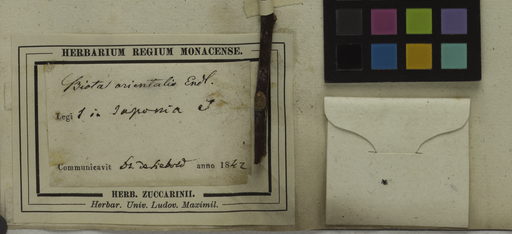 HERBARIUM REGIUM MONACENSE.
Biota orientalis Endl.
Legi in Japonia
Communicavit Dr. de Siebold anno 1842
HERB. ZUCCARINII.
Herbar. Univ. Ludov. Maximil.